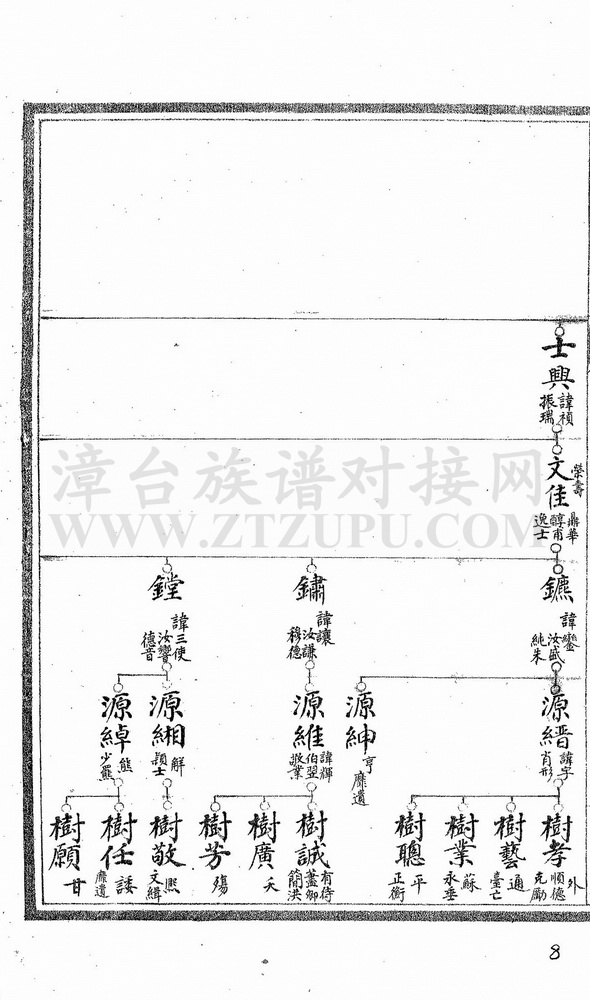 士興
諱禎
振瑞
文佳
榮壽
鼎華
醇甫
逸士
鑣
諱鑾
汝盛
純朱
鏽
諱讓
汝謙
穆德
鏜
諱三使
汝響
德音
源縉
諱字
肖形
源紳
亨
靡遺
源維
諱輝
伯翌
敬業
源緗
解
穎士
源綽
熊
少羆
樹孝
外
順德
克勵
樹藝
通
臺亡
樹業
蘇
永垂
樹聰
平
正衡
樹誠
有待
藎卿
簡洪
樹廣
夭
樹芳
殤
樹敬
熙
文緝
樹任
諉
靡遺
樹願
甘
漳台族谱对接网
WWW.ZTZUPU.COM
8